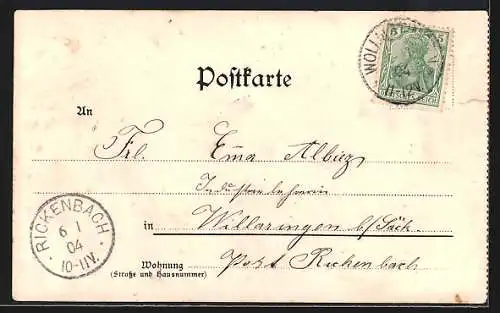 Postkarte
An
Frl. Ema Albiez
Industrielehrerin
in Willaringen b/Säck.
Wohnung Post Rickenbach
(Straße und Hausnummer)
RICKENBACH
6 1
04
10-11V.
5 5
04